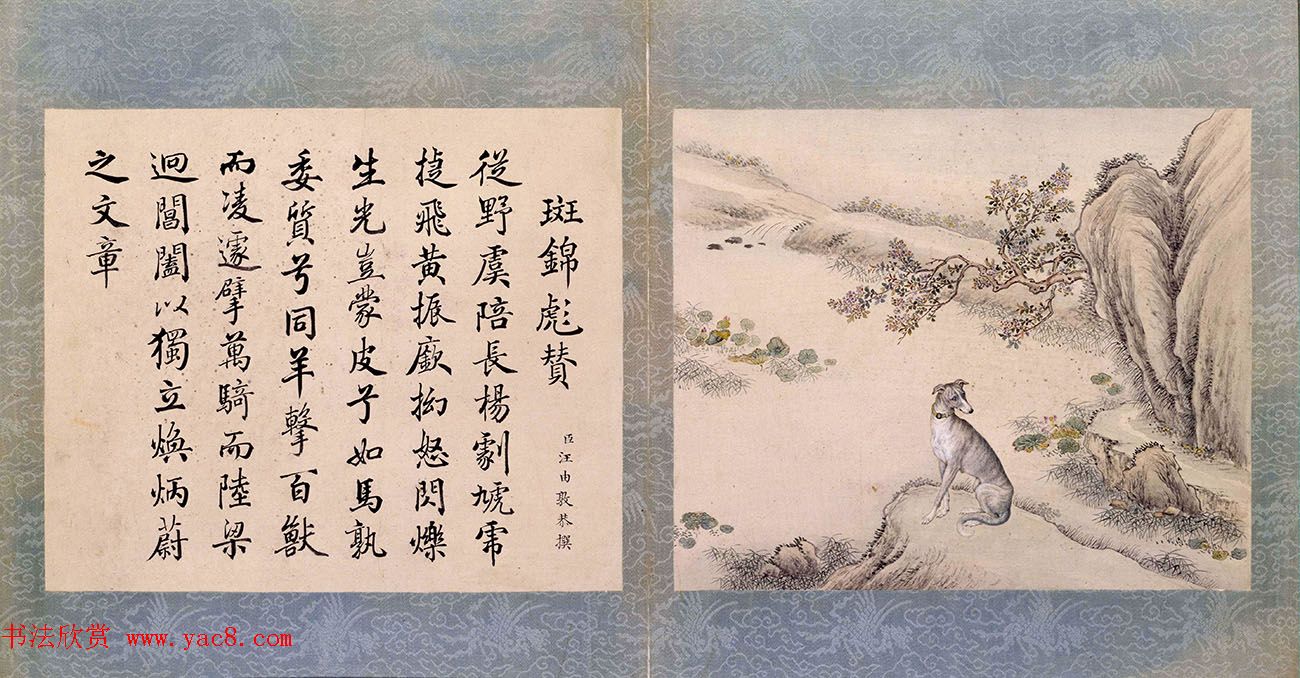 斑錦彪贊
臣汪由敦恭撰
從野虞陪長楊劇虓乕
捷飛黄振厥拗怒閃爍
生光豈蒙皮兮如馬孰
委質兮同羊擊百獸
而凌遽擘萬騎而陸梁
迴閶闔以獨立煥炳蔚
之文章
书法欣赏 www.yac8.com